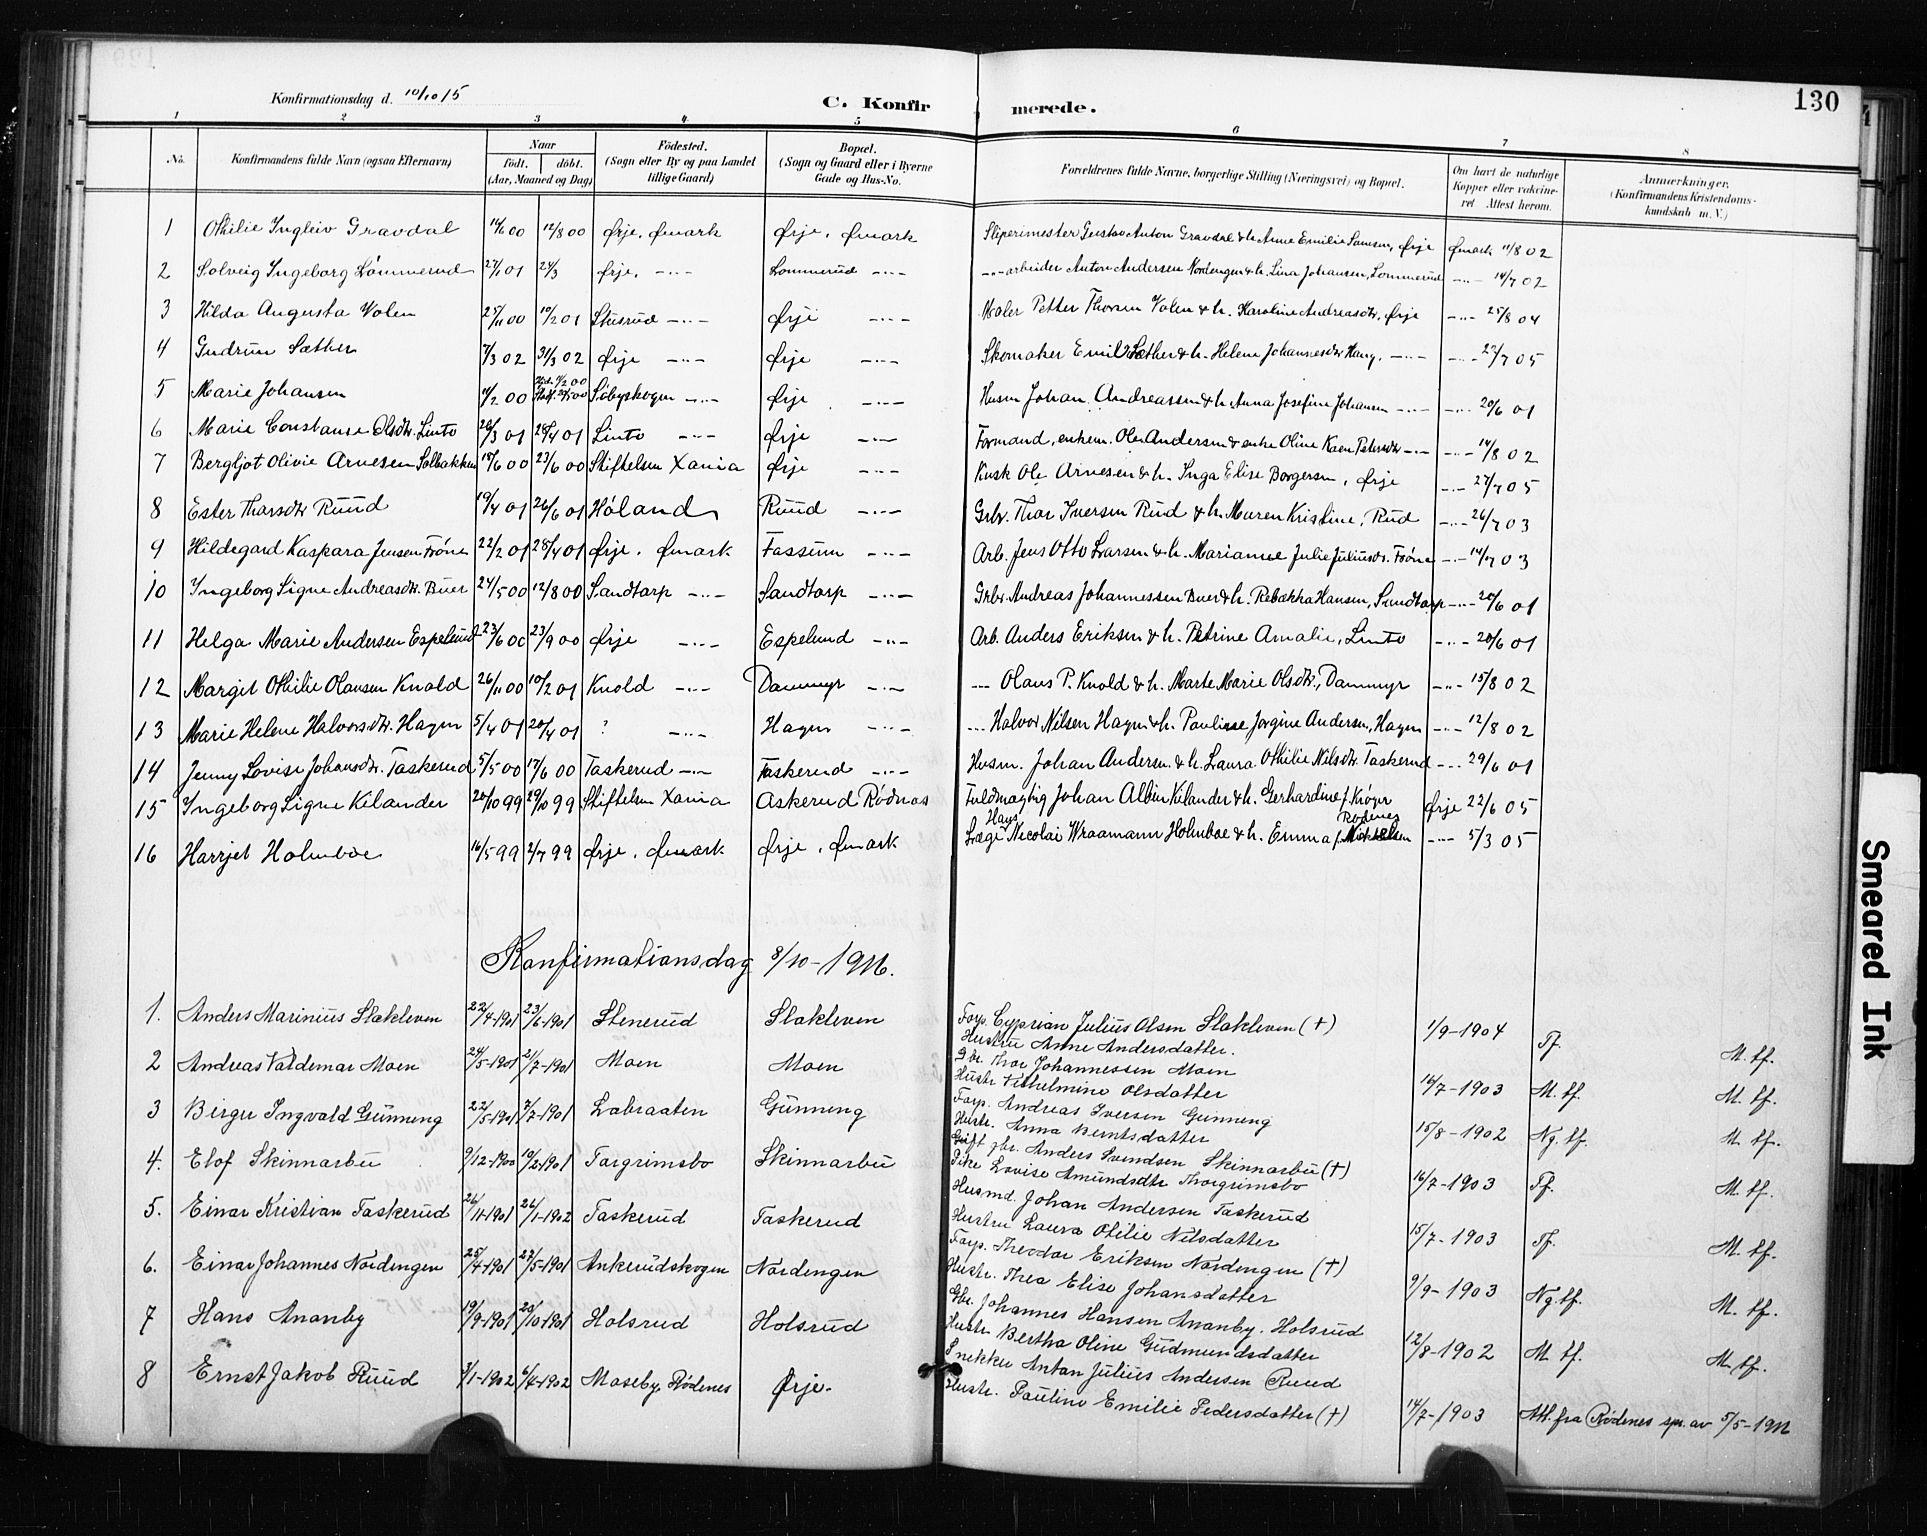 130
Konfirmationsdag d. 10/10 15
C. Konfirmerede.
1 2 3 4 5 6 7 8
No. Konfirmandens fulde Navn (ogsaa Efternavn) Naar født. døbt. (Aar, Maaned og Dag) Fødested. (Sogn eller By og paa Landet tillige Gaard) Bopæl. (Sogn og Gaard eller i Byerne Gade og Hus-No. Forældrenes fulde Navne, borgerlige Stilling (Næringsvei) og Bopæl. Om havt de naturlige Kopper eller vakcineret Attest herom. Anmærkninger. (Konfirmandens Kristendomskundskab m. V.)
1 Othilie Ingleiv Gravdal 14/6 00 12/8 00 Ørje, Ømark Ørje, Ømark Sliperimester Gustav Anton Gravdal & h. Anne Emilie Samsen, Ørje Ømark 11/8 02
2 Solveig Ingeborg Lømmerud 27/1 01 24/3 Ørje, -"- Lommerud -"- -"- arbeider Anton Andersen Nordengen & h. Lina Johansen, Lommerud -"- 14/7 02
3 Hilda Augusta Volen 25/11 00 10/2 01 Stusrud -"- Ørje -"- Maler Petter Thorsen Volen & h. Karoline Andreasdtr, Ørje -"- 25/8 04
4 Gudrun Sæther 7/3 02 31/3 02 Ørje -"- Ørje -"- Skomaker Emil Sæther & h. Helene Johannesdtr Haug, -"- -"- 27/7 05
5 Marie Johansen 11/2 00 Søbyskogen -"- Ørje -"- Husm Johan Andreassen & h. Anna Josefine Johansen -"- -"- 20/6 01
6 Marie Constanse Olsdtr. Linto 20/3 01 28/4 01 Linto -"- Ørje -"- Formand, enkem. Ole Andersen & enke Oline Karen Petersdtr -"- -"- 14/8 02
7 Bergljot Olivie Arnesen Solbakken 15/6 00 23/6 00 Stiftelsen Xania Ørje -"- Kusk Ole Arnesen & h. Inga Elise Borgersen, Ørje -"- 27/7 05
8 Ester Thorsdtr Ruud 19/4 01 26/6 01 Høland Ruud -"- Grbr. Thor Iversen Rud & h. Maren Kristine, Rud -"- 26/7 03
9 Hildegard Kaspara Jensen Frøne 22/2 01 28/4 01 Ørje, Ømark Fossum -"- Arb. Jens Otto Larsen & h. Marianne Julie Juliusdtr. Frøne -"- 14/7 03
10 Ingeborg Signe Andreasdtr. Buer 24/5 00 12/8 00 Sandtorp -"- Sandtorp -"- Grbr. Andreas Johannessen Buer & h. Rebekka Hansen, Sandtorp -"- 20/6 01
11 Helga Marie Andersen Espelund 23/6 00 23/9 00 Ørje -"- Espelund -"- Arb. Anders Eriksen & h. Petrine Amalie, Linto -"- 20/6 01
12 Margit Othilie Olausen Knold 26/11 00 10/2 01 Knold -"- Dammyr -"- -"- Olaus P. Knold & h. Marte Marie Olsdtr., Dammyr -"- 15/8 02
13 Marie Helene Halvorsdtr. Hagen 5/4 01 20/4 01 ? -"- Hagen -"- -"- Halvor Nilsen Hagen & h. Pauline Jorgine Andersen, Hagen -"- 12/8 02
14 Jenny Lovise Johansdtr. Taskerud 5/5 00 17/6 00 Taskerud -"- Taskerud -"- Husm. Johan Andersen. & h. Laura Othilie Nilsdtr. Taskerud -"- 29/6 01
15 Ingeborg Signe Kilander 20/10 99 29/10 99 Stiftelsen Xania Askerud Rødnæs Fuldmægtig Johan Albin Kilander & h. Gerhardine f. Krøger Rødenes Ørje 22/6 05
16 Harriet Holmboe 16/5 99 2/7 99 Ørje, Ømark Ørje, Ømark Læge Hans Nicolai Wraamann Holmboe & h. Emma f. Mickelsen -"- 5/3 05
Konfirmationsdag 8/10 - 1916.
1. Anders Marinius Slakleven 22/4-1901 23/6-1901 Stenerud Slakleven Forp. Cyprian Julius Olsen Slakleven (†) 1/9-1904 Tf. M. tf.
Hustru Anne Andersdatter.
2 Andreas Valdemar Moen 24/5-1901 21/7-1901 Moen Moen Gbr. Thor Johannessen Moen 16/7-1903 M. tf. M. tf.
Hustr Vilhelmine Olsdatter
3 Birger Ingvald Gunneng 22/5-1901 7/7-1901 Labraaten Gunneng Forp. Andreas Iversen Gunneng 15/8-1902 Ng. tf. M. tf.
Hustr. Anna Berntsdatter
4. Elof Skinnarbu 9/12-1900 10/2-1901 Torgrimsbo Skinnarbu Gift gbr. Anders Svendsen Skinnarbu (†) 16/7-1903 Tf. M. tf.
Pike Lovise Amundsdtr Thorgrimsbo
5. Einar Kristian Taskerud 26/11-1901 26/1-1902 Taskerud Taskerud Husmd. Johan Andersen Taskerud 15/7-1903 Tf. M. tf.
Hustru Laura Otilie Nilsdatter
6. Einar Johannes Nordengen 25/4-1901 27/5-1901 Ankerudskogen Nordengen Forp. Theodor Eriksen Nordengen (†) 9/9-1903 Ng. tf. M. tf.
Hustr. Thea Elise Johansdatter
7 Hans Ananby 19/9-1901 20/10-1901 Holsrud Holsrud Gbr. Johannes Hansen Ananby. Holsrud 12/8-1902 M. tf. M. tf.
Hustr Bertha Oline Gudmundsdatter
8 Ernst Jakob Ruud 7/1-1902 6/4-1902 Moseby, Rødenes Ørje. Snekker Anton Julius Andersen Ruud 14/7-1903 Att. fra Rødenes spr. av 5/5-1916
Hustr. Pauline Emilie Pedersdatter (†)
Smeared Ink